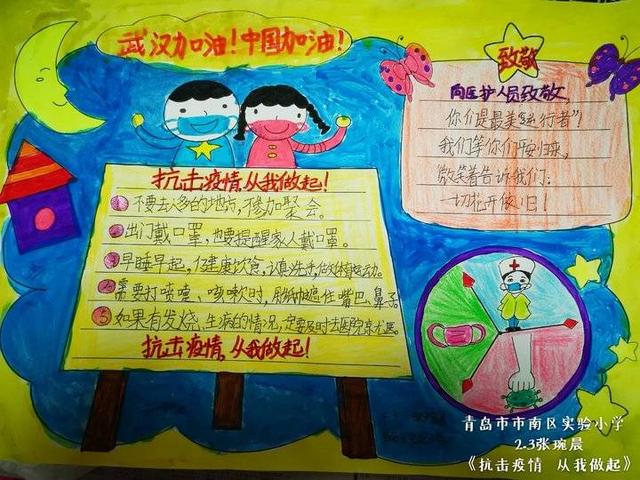 武汉加油！中国加油！
致敬
向医护人员致敬
你们是最美"逆行者"！
我们等你们平安归来，
微笑着告诉我们：
一切花开依旧！
抗击疫情，从我做起！
1 不要去人多的地方，不参加聚会。
2 出门戴口罩，也要提醒家人戴口罩。
3 早睡早起，健康饮食，认真洗手做体育运动。
4 需要打喷嚏、咳嗽时，用纸巾遮住嘴巴、鼻子。
5 如果有发烧、生病的情况，一定要及时去医院
抗击疫情，从我做起！
青岛市市南区实验小学
2.3张琬晨
《抗击疫情 从我做起》